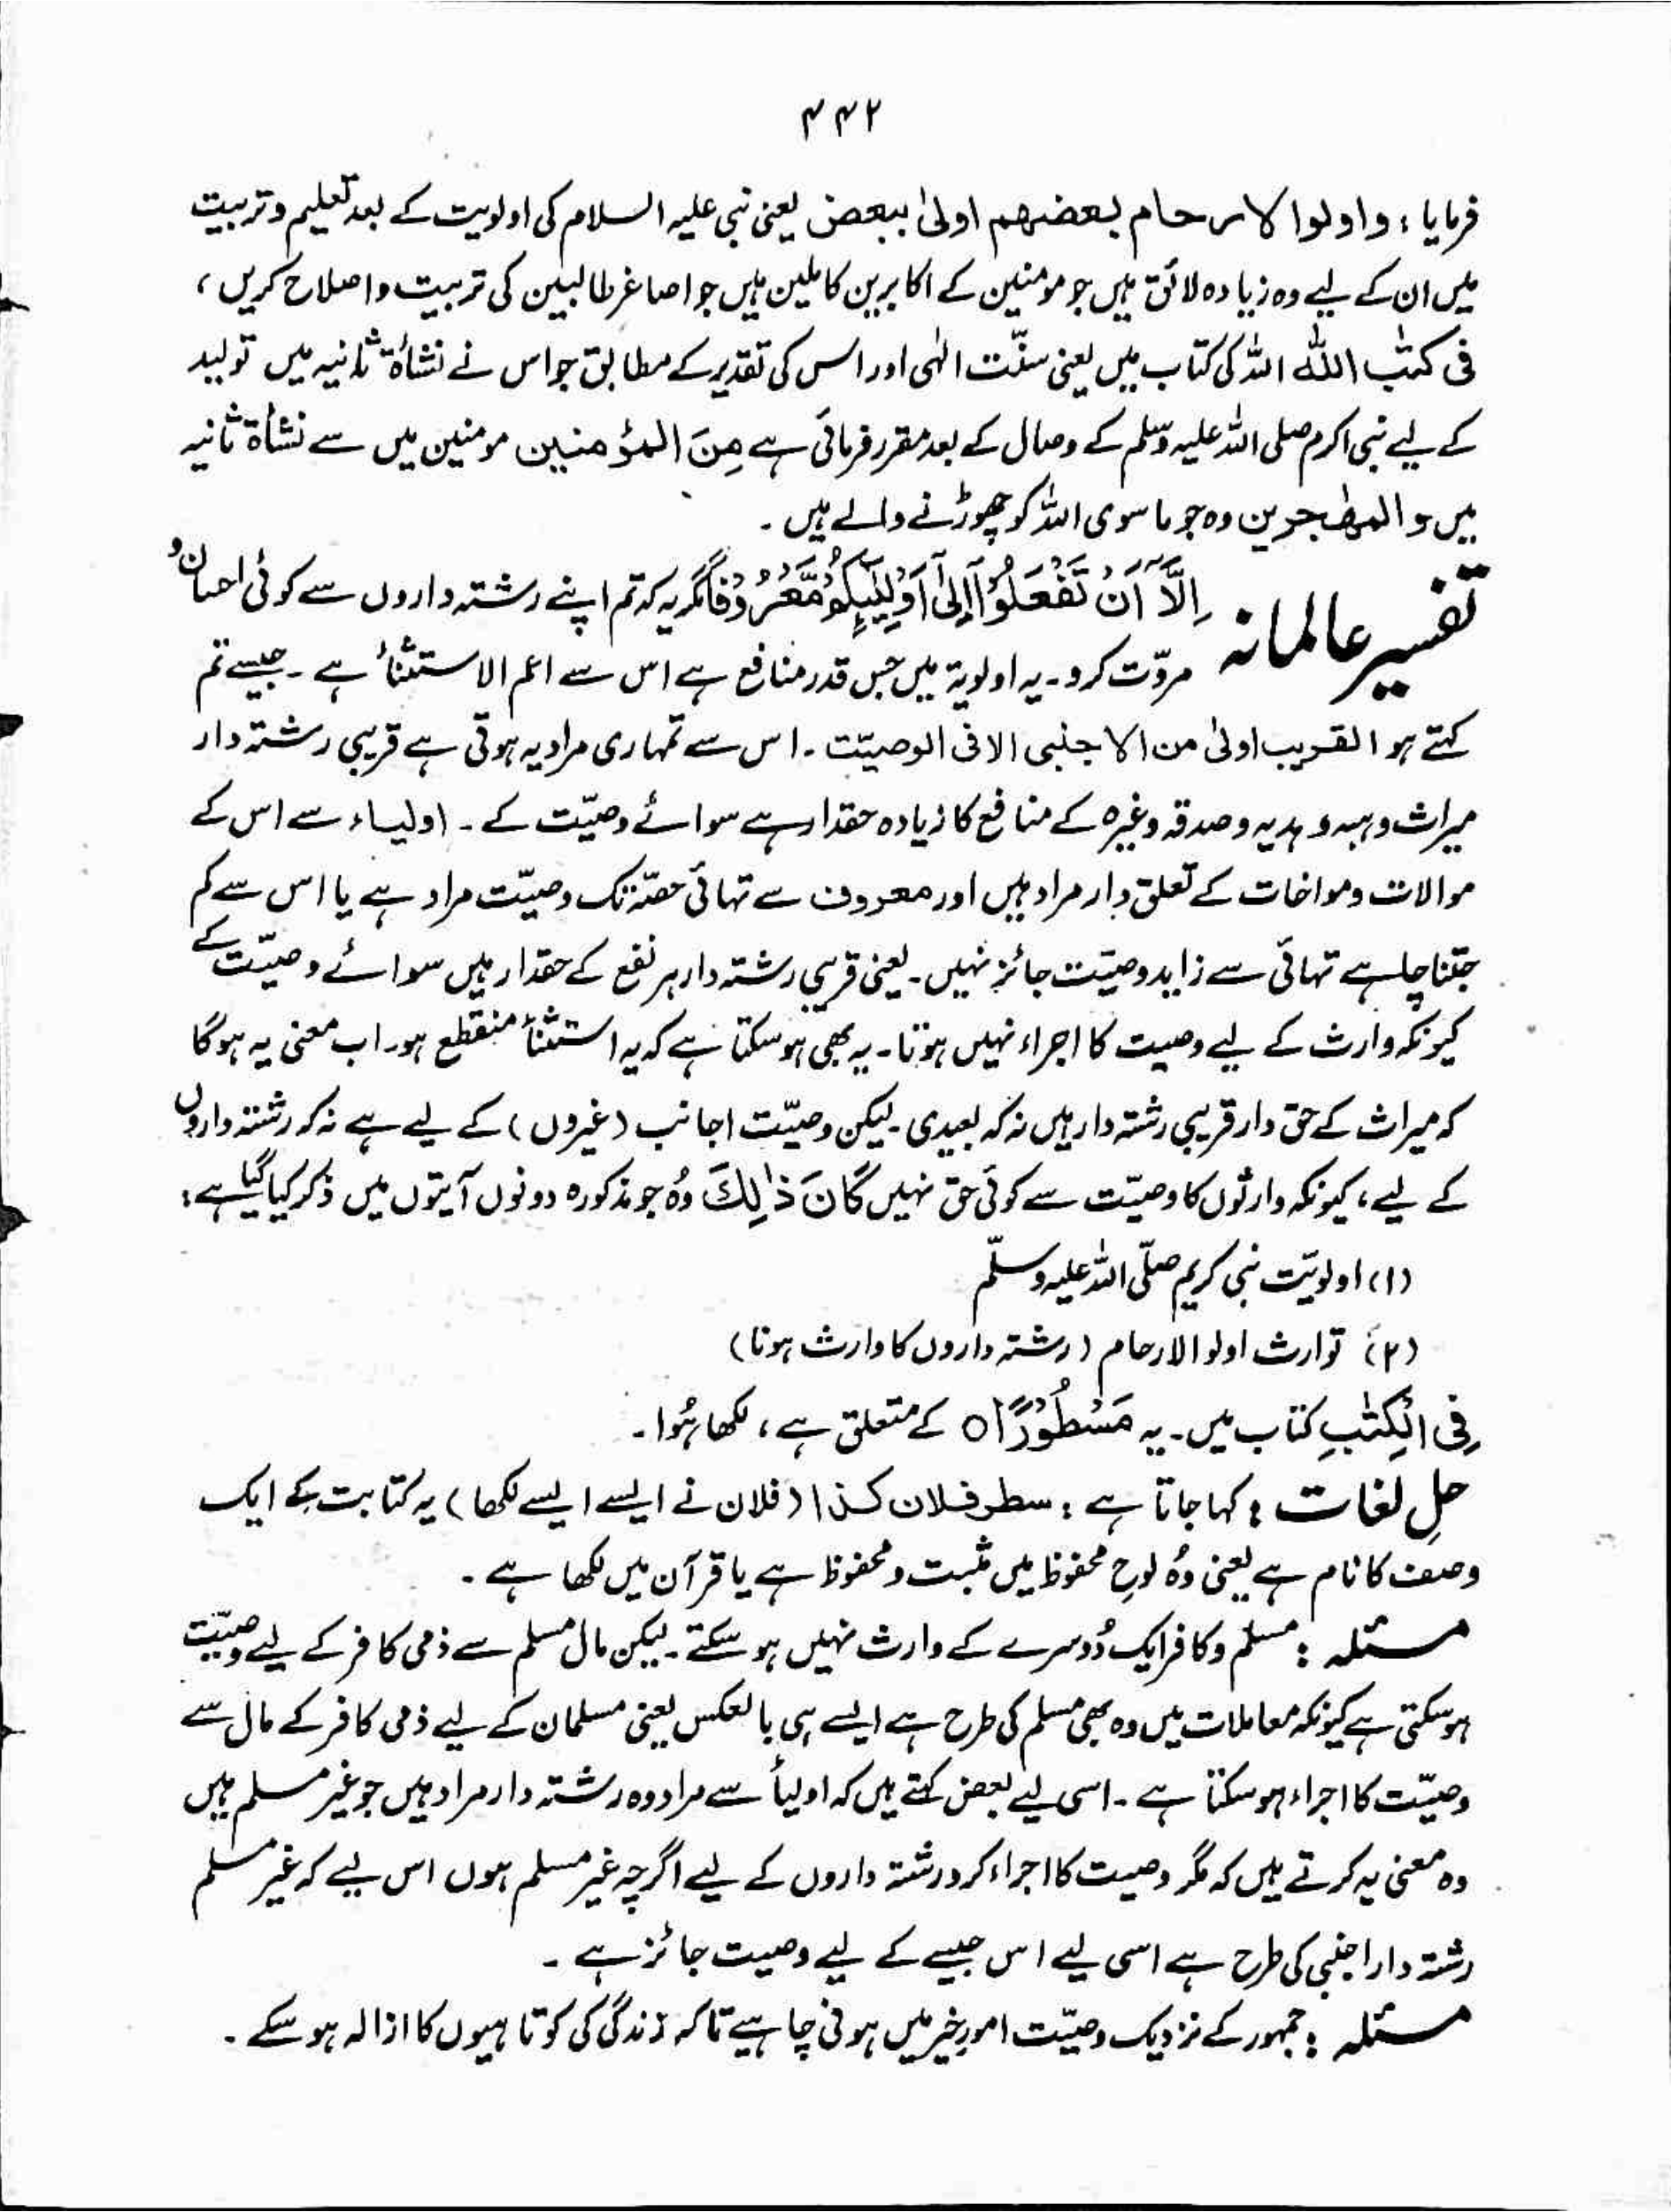 ۴۴۲
فرمایا : واولوا الارحام بعضهم اولیٰ ببعض یعنی نبی علیہ السلام کی اولویت کے بعد تعلیم و تربیت
میں ان کے لیے وہ زیادہ لائق ہیں جو مومنین کے اکابرین کاملین ہیں جو اصاغر طالبین کی تربیت و اصلاح کریں ،
فی کتٰب اللہ اللہ کی کتاب میں یعنی سنّت الٰہی اور اس کی تقدیر کے مطابق جو اس نے نشأۃ ثانیہ میں تولید
کے لیے نبی اکرم صلی اللہ علیہ وسلم کے وصال کے بعد مقرر فرمائی ہے مِنَ المؤمنین مومنین میں سے نشأۃ ثانیہ
میں والمهٰجرین وہ جو ماسوی اللہ کو چھوڑنے والے ہیں ۔
تفسیر عالمانہ اِلَّآ اَنْ تَفْعَلُوْٓا اِلٰٓی اَوْلِیٰٓئِكُمْ مَّعْرُوْفًا مگر یہ کہ تم اپنے رشتہ داروں سے کوئی احسان و
مروّت کرو ۔ یہ اولویۃ میں جس قدر منافع ہے اس سے اعم الاستثناء ہے ۔ جیسے تم
کہتے ہو القریب اولیٰ من الاجنبی الا فی الوصیّت ۔ اس سے تمہاری مراد یہ ہوتی ہے قریبی رشتہ دار
میراث و ہبہ و ہدیہ و صدقہ وغیرہ کے منافع کا زیادہ حقدار ہے سوائے وصیّت کے ۔ اولیاء سے اس کے
موالات و مواخات کے تعلق دار مراد ہیں اور معروف سے تہائی حصّہ تک وصیّت مراد ہے یا اس سے کم
جتنا چاہے تہائی سے زاید وصیّت جائز نہیں ۔ یعنی قریبی رشتہ دار ہر نفع کے حقدار ہیں سوائے وصیّت کے
کیونکہ وارث کے لیے وصیت کا اجراء نہیں ہوتا ۔ یہ بھی ہوسکتا ہے کہ یہ استثناء منقطع ہو ۔ اب معنی یہ ہوگا
کہ میراث کے حق دار قریبی رشتہ دار ہیں نہ کہ بعیدی ۔ لیکن وصیّت اجانب (غیروں) کے لیے ہے نہ کہ رشتہ داروں
کے لیے ، کیونکہ وارثوں کا وصیّت سے کوئی حق نہیں كَانَ ذٰلِكَ وُہ جو مذکورہ دونوں آیتوں میں ذکر کیا گیا ہے :
(۱) اولویّت نبی کریم صلّی اللہ علیہ وسلّم
(۲) توارث اولوا الارحام (رشتہ داروں کا وارث ہونا)
فِی الْكِتٰبِ کتاب میں ۔ یہ مَسْطُوْرًا ○ کے متعلق ہے ، لکھا ہُوا ۔
حلِ لغات : کہا جاتا ہے : سطر فلان کذا (فلان نے ایسے ایسے لکھا) یہ کتابت کے ایک
وصف کا نام ہے یعنی وُہ لوحِ محفوظ میں مثبت و محفوظ ہے یا قرآن میں لکھا ہے ۔
مسئلہ : مسلم و کافر ایک دُوسرے کے وارث نہیں ہو سکتے ۔ لیکن مال مسلم سے ذمی کافر کے لیے وصیّت
ہوسکتی ہے کیونکہ معاملات میں وہ بھی مسلم کی طرح ہے ایسے ہی بالعکس یعنی مسلمان کے لیے ذمی کافر کے مال سے
وصیّت کا اجراء ہوسکتا ہے ۔ اسی لیے بعض کہتے ہیں کہ اولیأ سے مراد وہ رشتہ دار مراد ہیں جو غیر مسلم ہیں
وہ معنی یہ کرتے ہیں کہ مگر وصیت کا اجراء کرو رشتہ داروں کے لیے اگرچہ غیر مسلم ہوں اس لیے کہ غیر مسلم
رشتہ دار اجنبی کی طرح ہے اسی لیے اس جیسے کے لیے وصیت جائز ہے ۔
مسئلہ : جمہور کے نزدیک وصیّت امورِ خیر میں ہونی چاہیے تاکہ زندگی کی کوتاہیوں کا ازالہ ہو سکے ۔